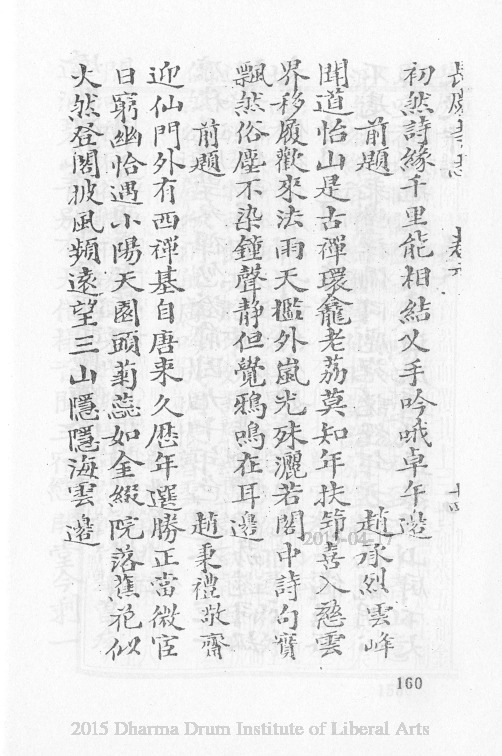 長慶寺志 卷六 十四
初然詩緣千里能相結叉手吟哦卓午邊
前題 趙承烈雲峰
聞道怡山是古禪環龕老荔莫知年扶筇喜入慈雲
界移屐歡來法雨天檻外嵐光殊灑若閣中詩句實
飄然俗塵不染鐘聲靜但覺鴉鳴在耳邊
前題 趙秉禮敬齋
迎仙門外有西禪基自唐來久歷年選勝正當微宦
日窮幽恰遇小陽天園頭菊蕊如金綴院落蕉花似
火然登閣披風頻遠望三山隱隱海雲邊
2015-04-17
160
2015 Dharma Drum Institute of Liberal Arts